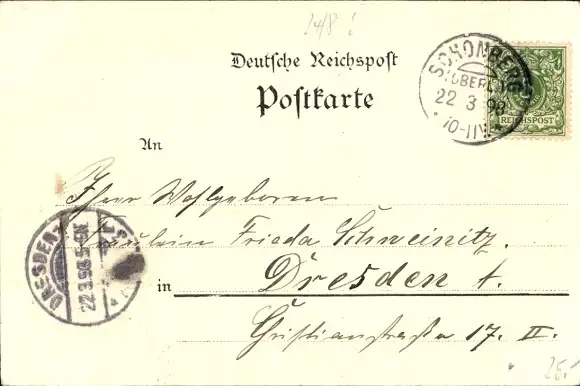 24/8
Deutsche Reichspost
Postkarte
SCHÖNBERG
(OBERL.)
22 3 98
10-11V.
REICHSPOST
An
Ihrer Wohlgeboren
Fräulein Frieda Schweinitz.
DRESDEN-
22.3.98. 5-6N
in Dresden A.
Christianstraße 17. II.
25.-